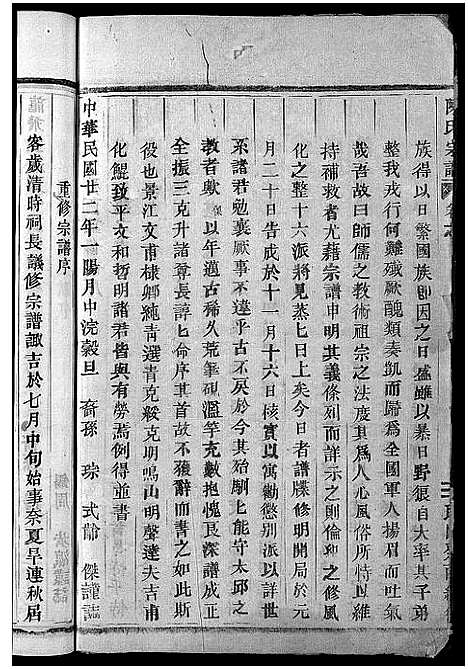 陳氏宗譜
族得以日繁國族即因之日盛雖以暴日野狠自大率其子弟
整我戎行何難殲厥醜類奏凱而歸爲全國軍人揚眉而吐氣
哉吾故曰師儒之教術祖宗之法度其爲人心風俗所恃以維
持補救者尤藉宗譜申明其義條列而詳示之則倫紀之修風
化之整十六派將見蒸七日上矣今日者譜牒修明開局於元
月二十日告成於十一月十六日核實以寓勸懲別派以詳世
系諸君勉襄厥事不遑乎古不戾於始馴上能守太邱之
教者歟 以年邁古稀久荒筆硯濫竽充數抱愧良深譜成
全振三克升諸尊長諄七命序其首故不獲辭而書之如此斯
役也景江文甫棣卿純青選青克毅克明鳴山明聲達夫吉甫
化鯤致平文和哲明諸君皆與有勞焉例得並書
中華民國廿二年一陽月中浣穀旦 裔孫 琮 式韍 傑謹誌
重修宗譜序
龍飛客歲清時祠長議修宗譜諏吉於七月中旬始事奈夏旱連秋居